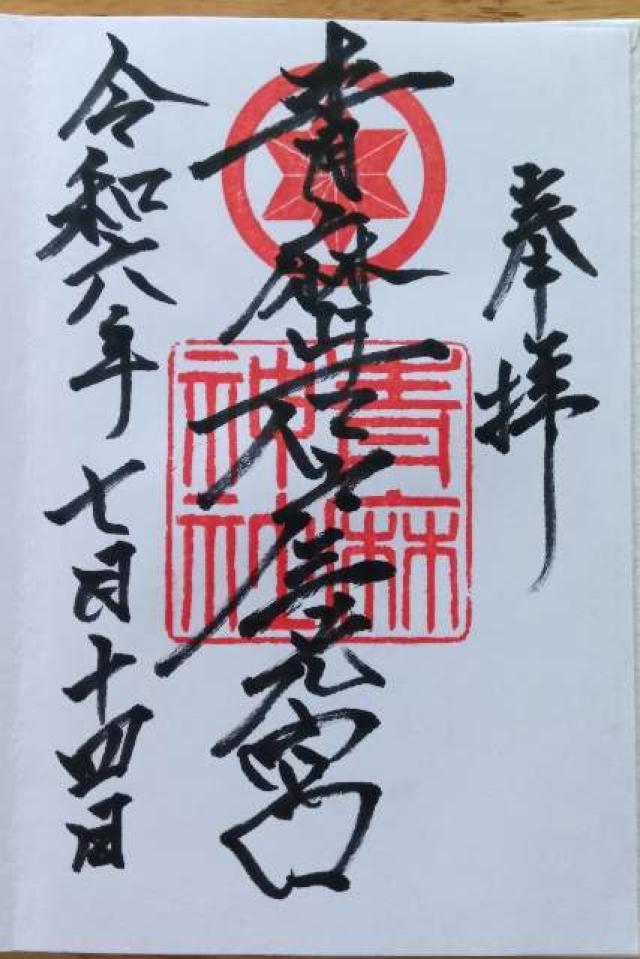 奉拝
青麻三光宮
青麻
神社
令和六年七月十四日